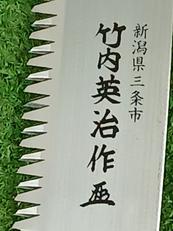 新潟県三条市
竹内英治作